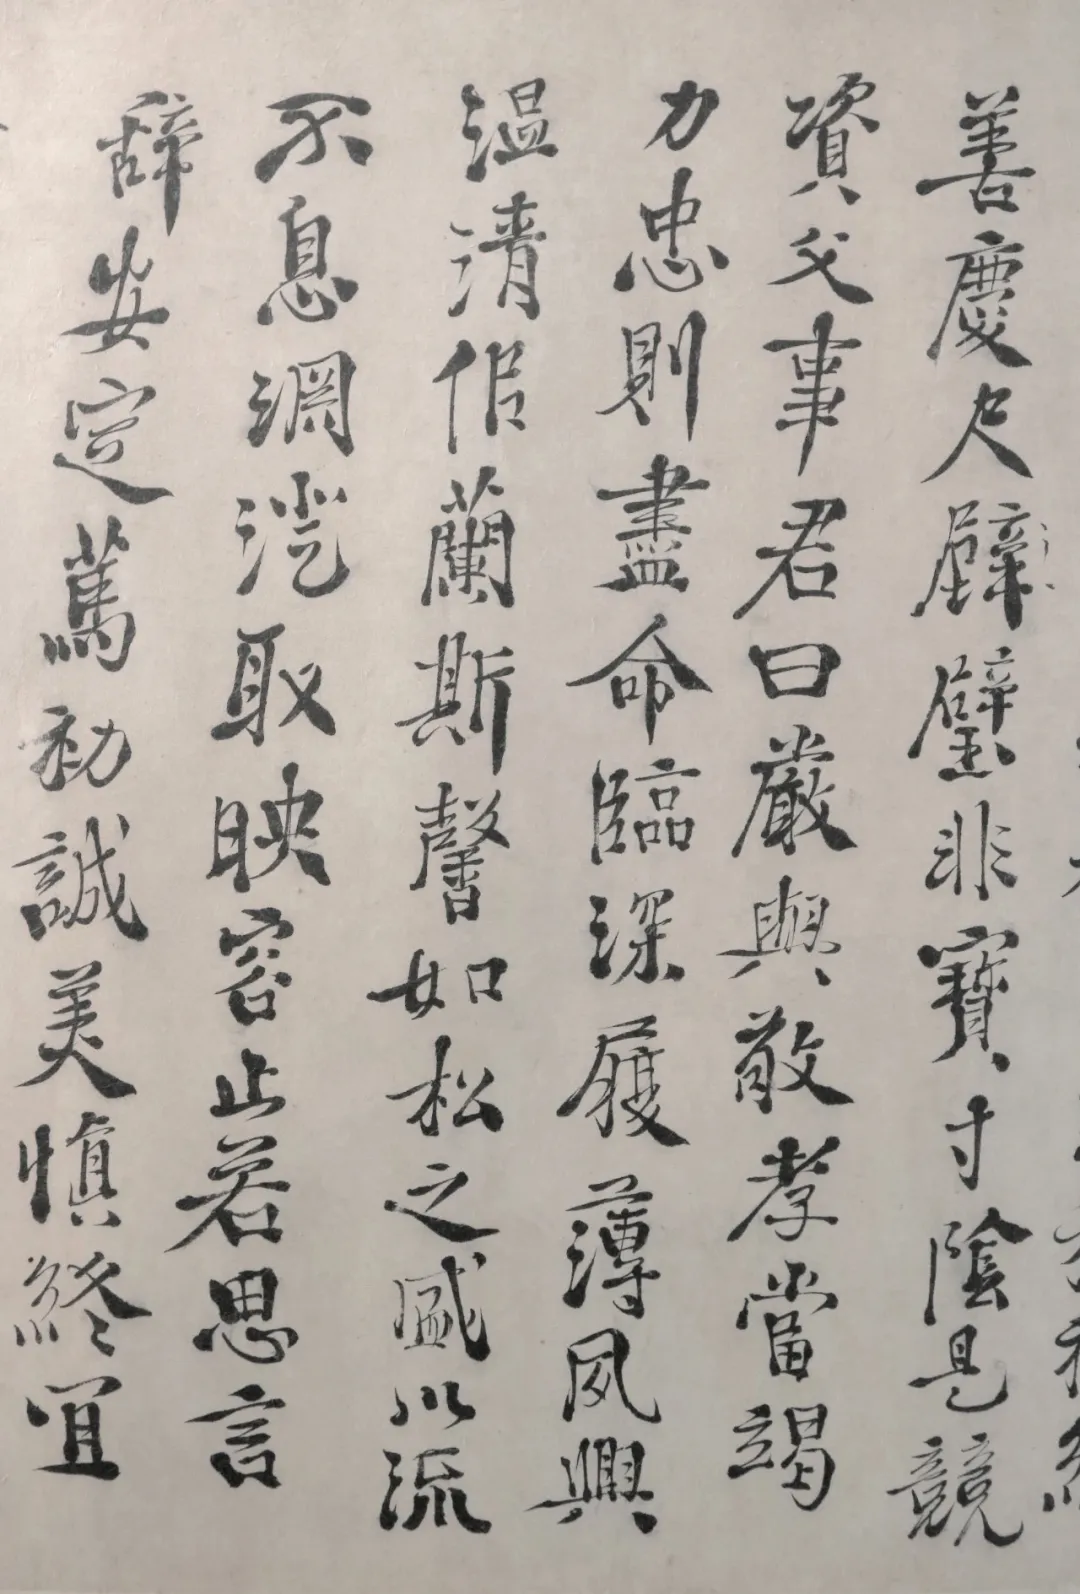 善慶尺璧非寶寸陰是競
資父事君曰嚴與敬孝當竭
力忠則盡命臨深履薄夙興
溫清佀蘭斯馨如松之盛以流
不息淵澄取映容止若思言
辭安定篤初誠美慎終宜